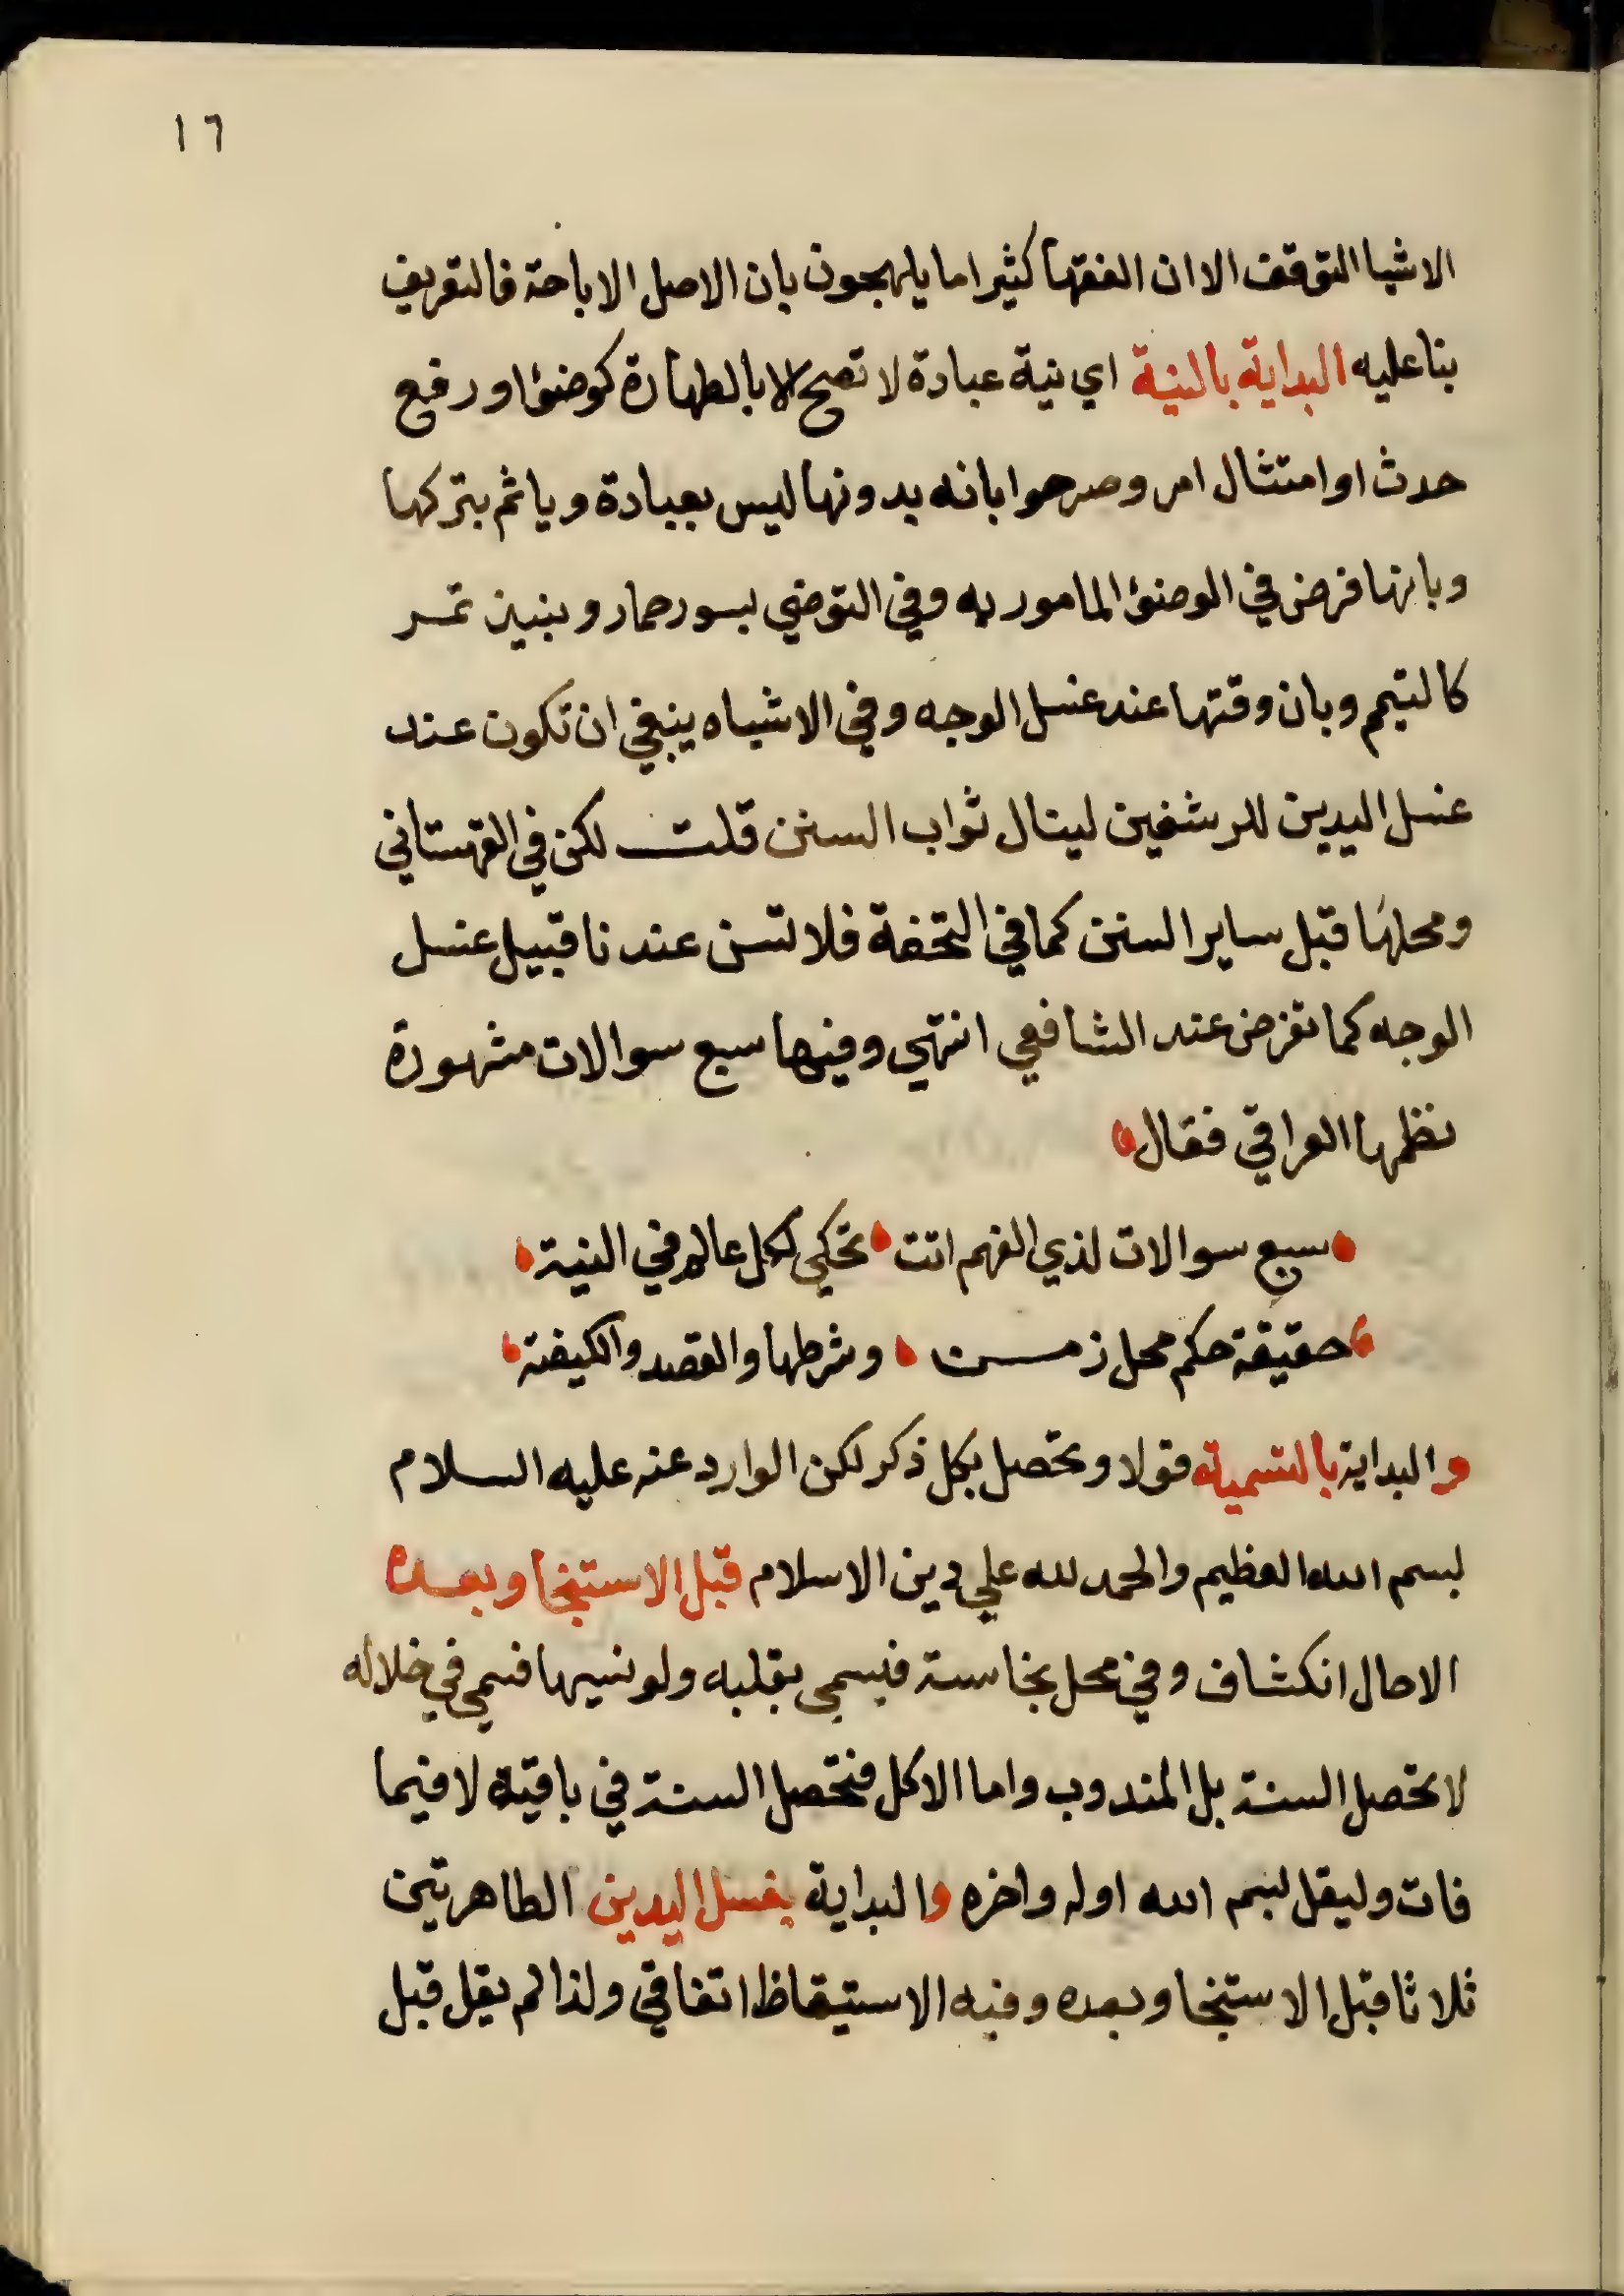 ١٦
الاشيا التوقف الا ان الفقها كثيرا ما يلهجون بان الاصل الاباحة فالتعريف
بنا عليه البداية بالنية اي نية عبادة لا تصح الا بالطهارة كوضؤ او رفع
حدث او امتثال امر وصرحوا بانه بدونها ليس بعبادة وياثم بتركها
وبانها فرض في الوضؤ المامور به وفي التوضي بسور حمار وبنبيذ تمر
كالتيمم وبان وقتها عند غسل الوجه وفي الاشباه ينبغي ان تكون عند
غسل اليدين للرسغين لينال ثواب السنن قلت لكن في القهستاني
ومحلها قبل ساير السنن كما في التحفة فلا تسن عندنا قبيل غسل
الوجه كما تفرض عند الشافعي انتهي وفيها سبع سوالات مشهورة
نظمها العراقي فقال
سبع سوالات لذي الفهم اتت تحكي لكل عالم في النية
حقيقة حكم محل زمن وشرطها والقصد والكيفية
والبداية بالتسمية قولا وتحصل بكل ذكر لكن الوارد عنه عليه السلام
بسم الله العظيم والحمد لله علي دين الاسلام قبل الاستنجا وبعده
الا حال انكشاف وفي محل نجاسة فيسمي بقلبه ولو نسيها فسمي في خلاله
لا تحصل السنة بل المندوب واما الاكل فتحصل السنة في باقيه لا فيما
فات وليقل بسم الله اوله واخره والبداية بغسل اليدين الطاهرتين
ثلاثا قبل الاستنجا وبعده وقيد الاستيقاظ اتفاقي ولذا لم يقل قبل